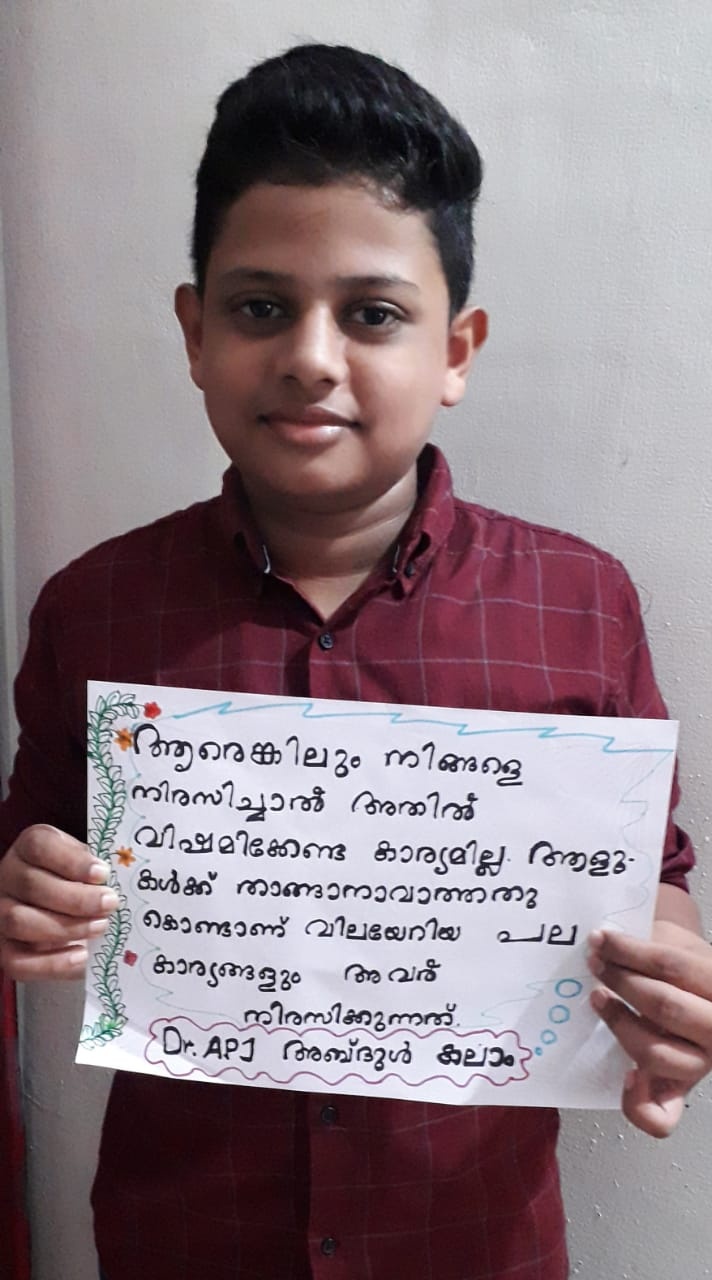 ആരെങ്കിലും നിങ്ങളെ
നിരസിച്ചാൽ അതിൽ
വിഷമിക്കേണ്ട കാര്യമില്ല. ആളു-
കൾക്ക് താങ്ങാനാവാത്തതു
കൊണ്ടാണ് വിലയേറിയ പല
കാര്യങ്ങളും അവർ
നിരസിക്കുന്നത്.
Dr. APJ അബ്ദുൾ കലാം